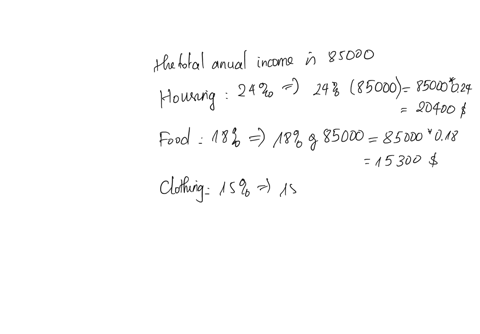 the total anual income is 85000
Housing : 24% => 24% (85000) = 85000*0.24
= 20400 $
Food : 18% => 18% of 85000 = 85000*0.18
= 15300 $
Clothing : 15% => 15